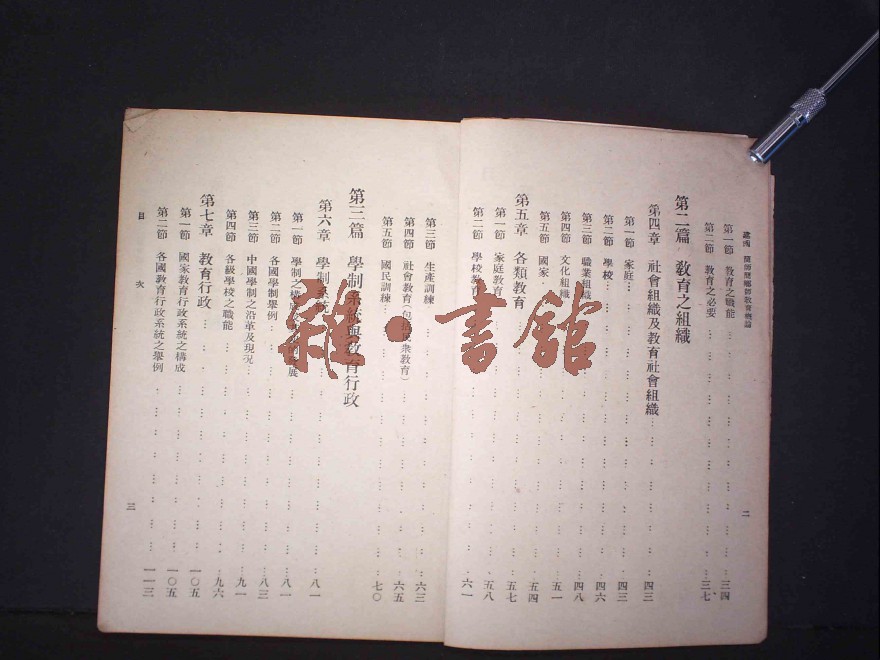 簡師簡鄉師教育概論
第一節 教育之職能 三四
第二節 教育之必要 三七
第二篇 教育之組織
第四章 社會組織及教育社會組織 四三
第一節 家庭 四三
第二節 學校 四六
第三節 職業組織 四八
第四節 文化組織 五一
第五節 國家 五四
第五章 各類教育 五七
第一節 家庭教育 五八
第二節 學校教育 六一
二
第三節 生產訓練 六三
第四節 社會教育(包括民衆教育) 六五
第五節 國民訓練 七〇
第三篇 學制系統與教育行政
第六章 學制系統 八一
第一節 學制之構 展 八一
第二節 各國學制舉例 八三
第三節 中國學制之沿革及現況 九一
第四節 各級學校之職能 九六
第七章 教育行政 一〇五
第一節 國家教育行政系統之構成 一〇五
第二節 各國教育行政系統之舉例 一一三
目次
三
雜·書館